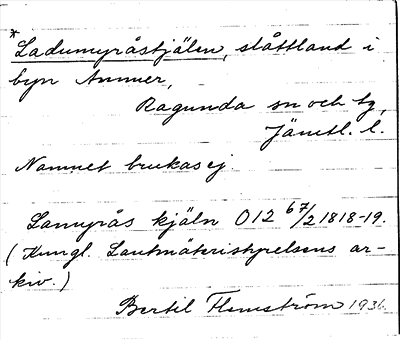 *Ladumyråstjälen, slåttland i
byn Ammer,
Ragunda sn och tg,
Jämtl. l.
Namnet brukas ej.
Lamyrås kjäln O12 67/2 1818-19.
(Kungl. Lantmäteristyrelsens ar-
kiv.)
Bertil Flemström 1936.